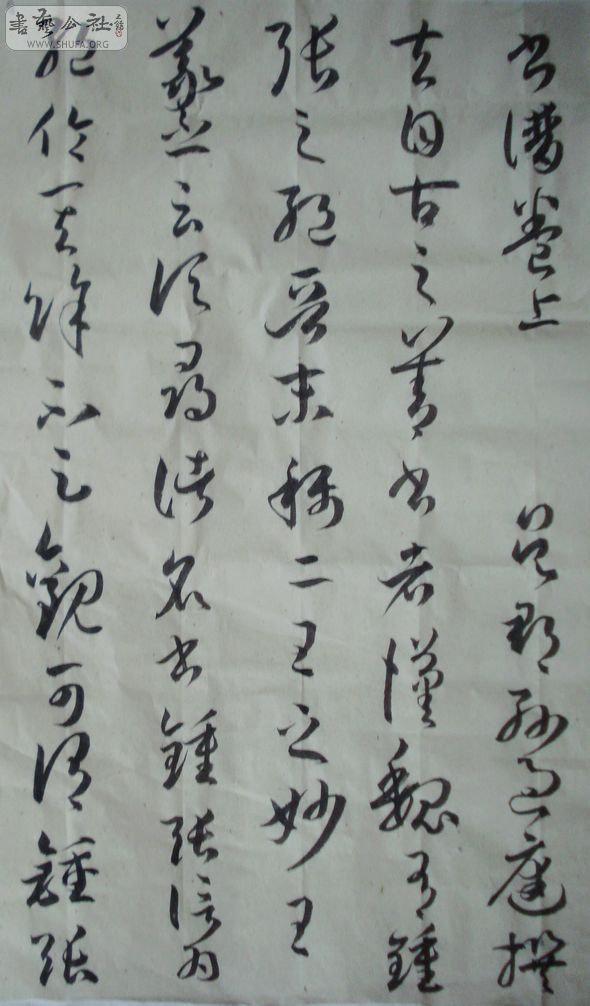 書譜卷上 吳郡孫過庭撰
夫自古之善書者漢魏有鍾
張之絕晉末稱二王之妙王
羲之云頃尋諸名書鍾張信為
絕倫其餘不足觀可謂鍾張
書藝公社
WWW.SHUFA.ORG